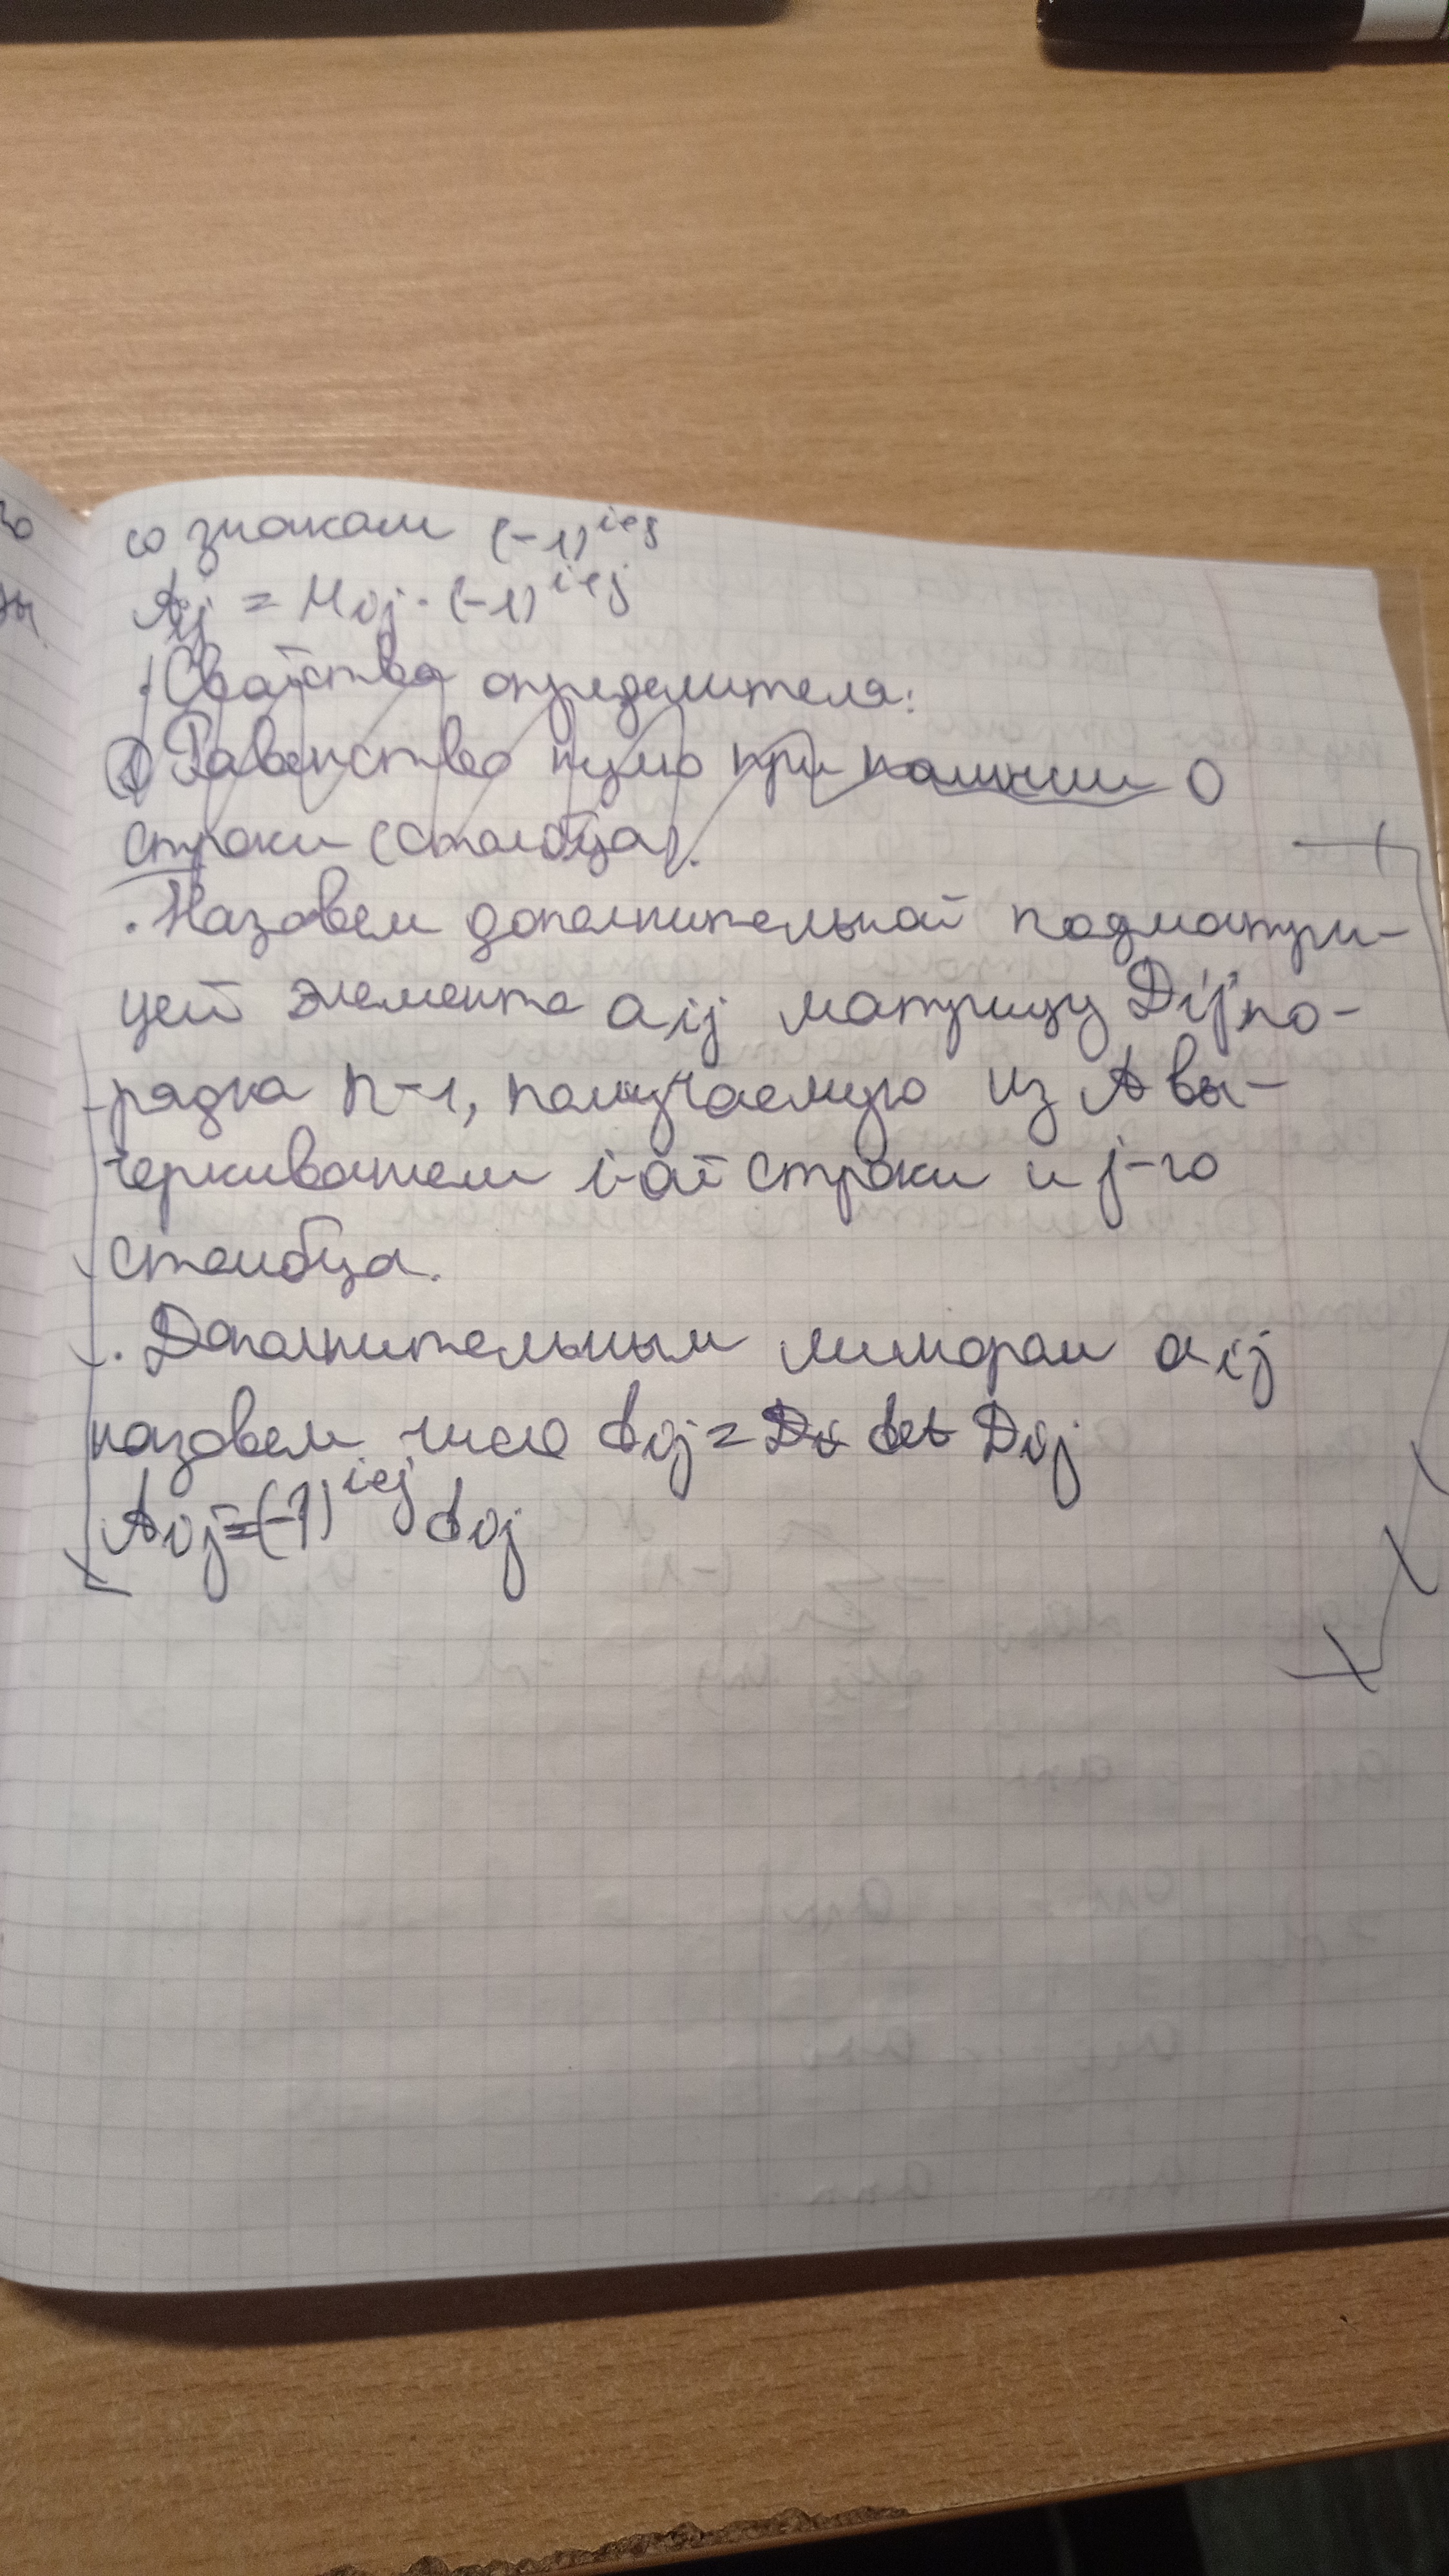 со знаком (-1)^{i+j}
A_{ij} = M_{ij} · (-1)^{i+j}
· Свойства определителя:
① Равенство нулю при наличии 0
строки (столбца).
· Назовем дополнительной подматри-
цей элемента a_{ij} матрицу D_{ij} по-
рядка n-1, получаемую из A вы-
черкиванием i-ой строки и j-го
столбца.
· Дополнительным минором a_{ij}
назовем число d_{ij} = det D_{ij}
A_{ij} = (-1)^{i+j} d_{ij}